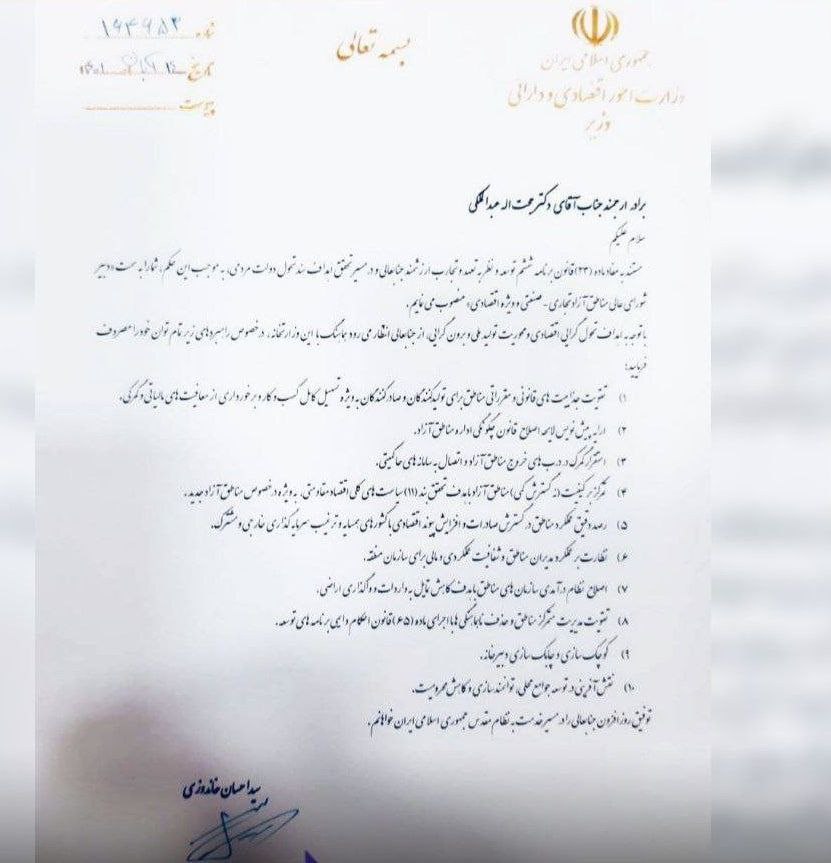 جمهوری اسلامی ایران
وزارت امور اقتصادی و دارائی
وزیر
بسمه تعالی
شماره ۱۶۴۹۵۲
تاریخ ۱۴۰۱
پیوست
برادر ارجمند جناب آقای دکتر حجت اله عبدالملکی
سلام علیکم
مستند به مفاد ماده (۲۳) قانون برنامه ششم توسعه و نظر به تعهد و تجارب ارزشمند جنابعالی و در مسیر تحقق اهداف سند تحول دولت مردمی، به موجب این حکم، شما را به سمت «دبیر
شورای عالی مناطق آزاد تجاری - صنعتی و ویژه اقتصادی» منصوب می نمایم.
با توجه به اهداف تحول گرایی اقتصادی و محوریت تولید ملی و برون گرایی، از جنابعالی انتظار می رود هماهنگ با این وزارتخانه، در خصوص راهبردهای زیر تمام توان خود را مصروف
فرمایید:
۱) تقویت جذابیت های قانونی و مقرراتی مناطق برای تولیدکنندگان و صادرکنندگان به ویژه تسهیل کامل کسب و کار و برخورداری از معافیت های مالیاتی و گمرکی.
۲) ارایه پیش نویس لایحه اصلاح قانون چگونگی اداره مناطق آزاد.
۳) استقرار گمرک در درب های خروج مناطق آزاد و اتصال به سامانه های حاکمیتی.
۴) تمرکز بر کیفیت (نه گسترش کمی) مناطق آزاد با هدف تحقق بند (۱۱) سیاست های کلی اقتصاد مقاومتی، به ویژه در خصوص مناطق آزاد جدید.
۵) رصد دقیق عملکرد مناطق در گسترش صادرات و افزایش پیوند اقتصادی با کشورهای همسایه و ترغیب سرمایه گذاری خارجی و مشترک.
۶) نظارت بر عملکرد مدیران مناطق و شفافیت عملکردی و مالی برای سازمان منطقه.
۷) اصلاح نظام درآمدی سازمان های مناطق با هدف کاهش تمایل به واردات و واگذاری اراضی.
۸) تقویت مدیریت متمرکز مناطق و حذف ناهماهنگی ها با اجرای ماده (۶۵) قانون احکام دایمی برنامه های توسعه.
۹) کوچک سازی و چابک سازی دبیرخانه.
۱۰) نقش آفرینی در توسعه جوامع محلی، توانمندسازی و کاهش محرومیت.
توفیق روز افزون جنابعالی را در مسیر خدمت به نظام مقدس جمهوری اسلامی ایران خواهانم.
سید احسان خاندوزی